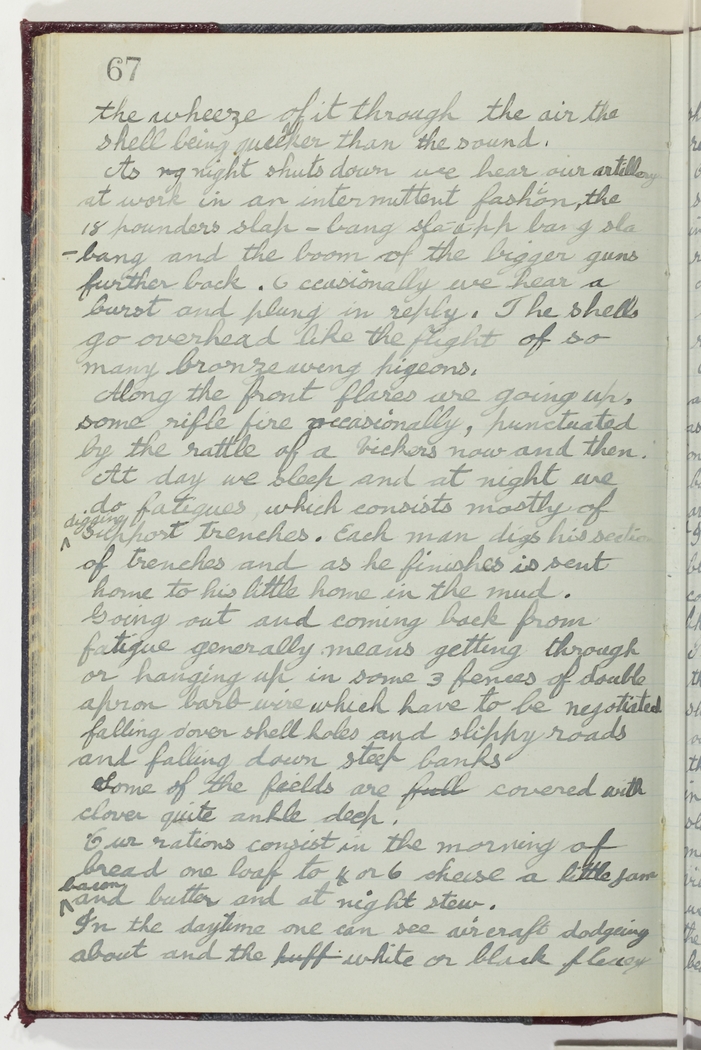 67
the wheeze of it through the air the
shell being quicker than the sound.
As night shuts down we hear our artillery
at work in an intermittent fashion, the
18 pounders slap - bang sla-app bang sla
- bang and the boom of the bigger guns
further back. Occasionally we hear a
burst and plung in reply. The shells
go overhead like the flight of so
many bronzewing pigeons.
Along the front flares are going up,
some rifle fire occasionally, punctuated
by the rattle of a Vickers now and then.
At day we sleep and at night we
do fatigues, which consists mostly of
digging
support trenches. Each man digs his section
of trenches and as he finishes is sent
home to his little home in the mud.
Going out and coming back from
fatigue generally means getting through
or hanging up in some 3 fences of double
apron barb wire which have to be negotiated
falling over shell holes and slippy roads
and falling down steep banks
Some of the fields are full covered with
clover quite ankle deep.
Our rations consist in the morning of
bread one loaf to 4 or 6 cheese a little jam
bacon
and butter and at night stew.
In the daytime one can see aircraft dodgeing
about and the puff white or black